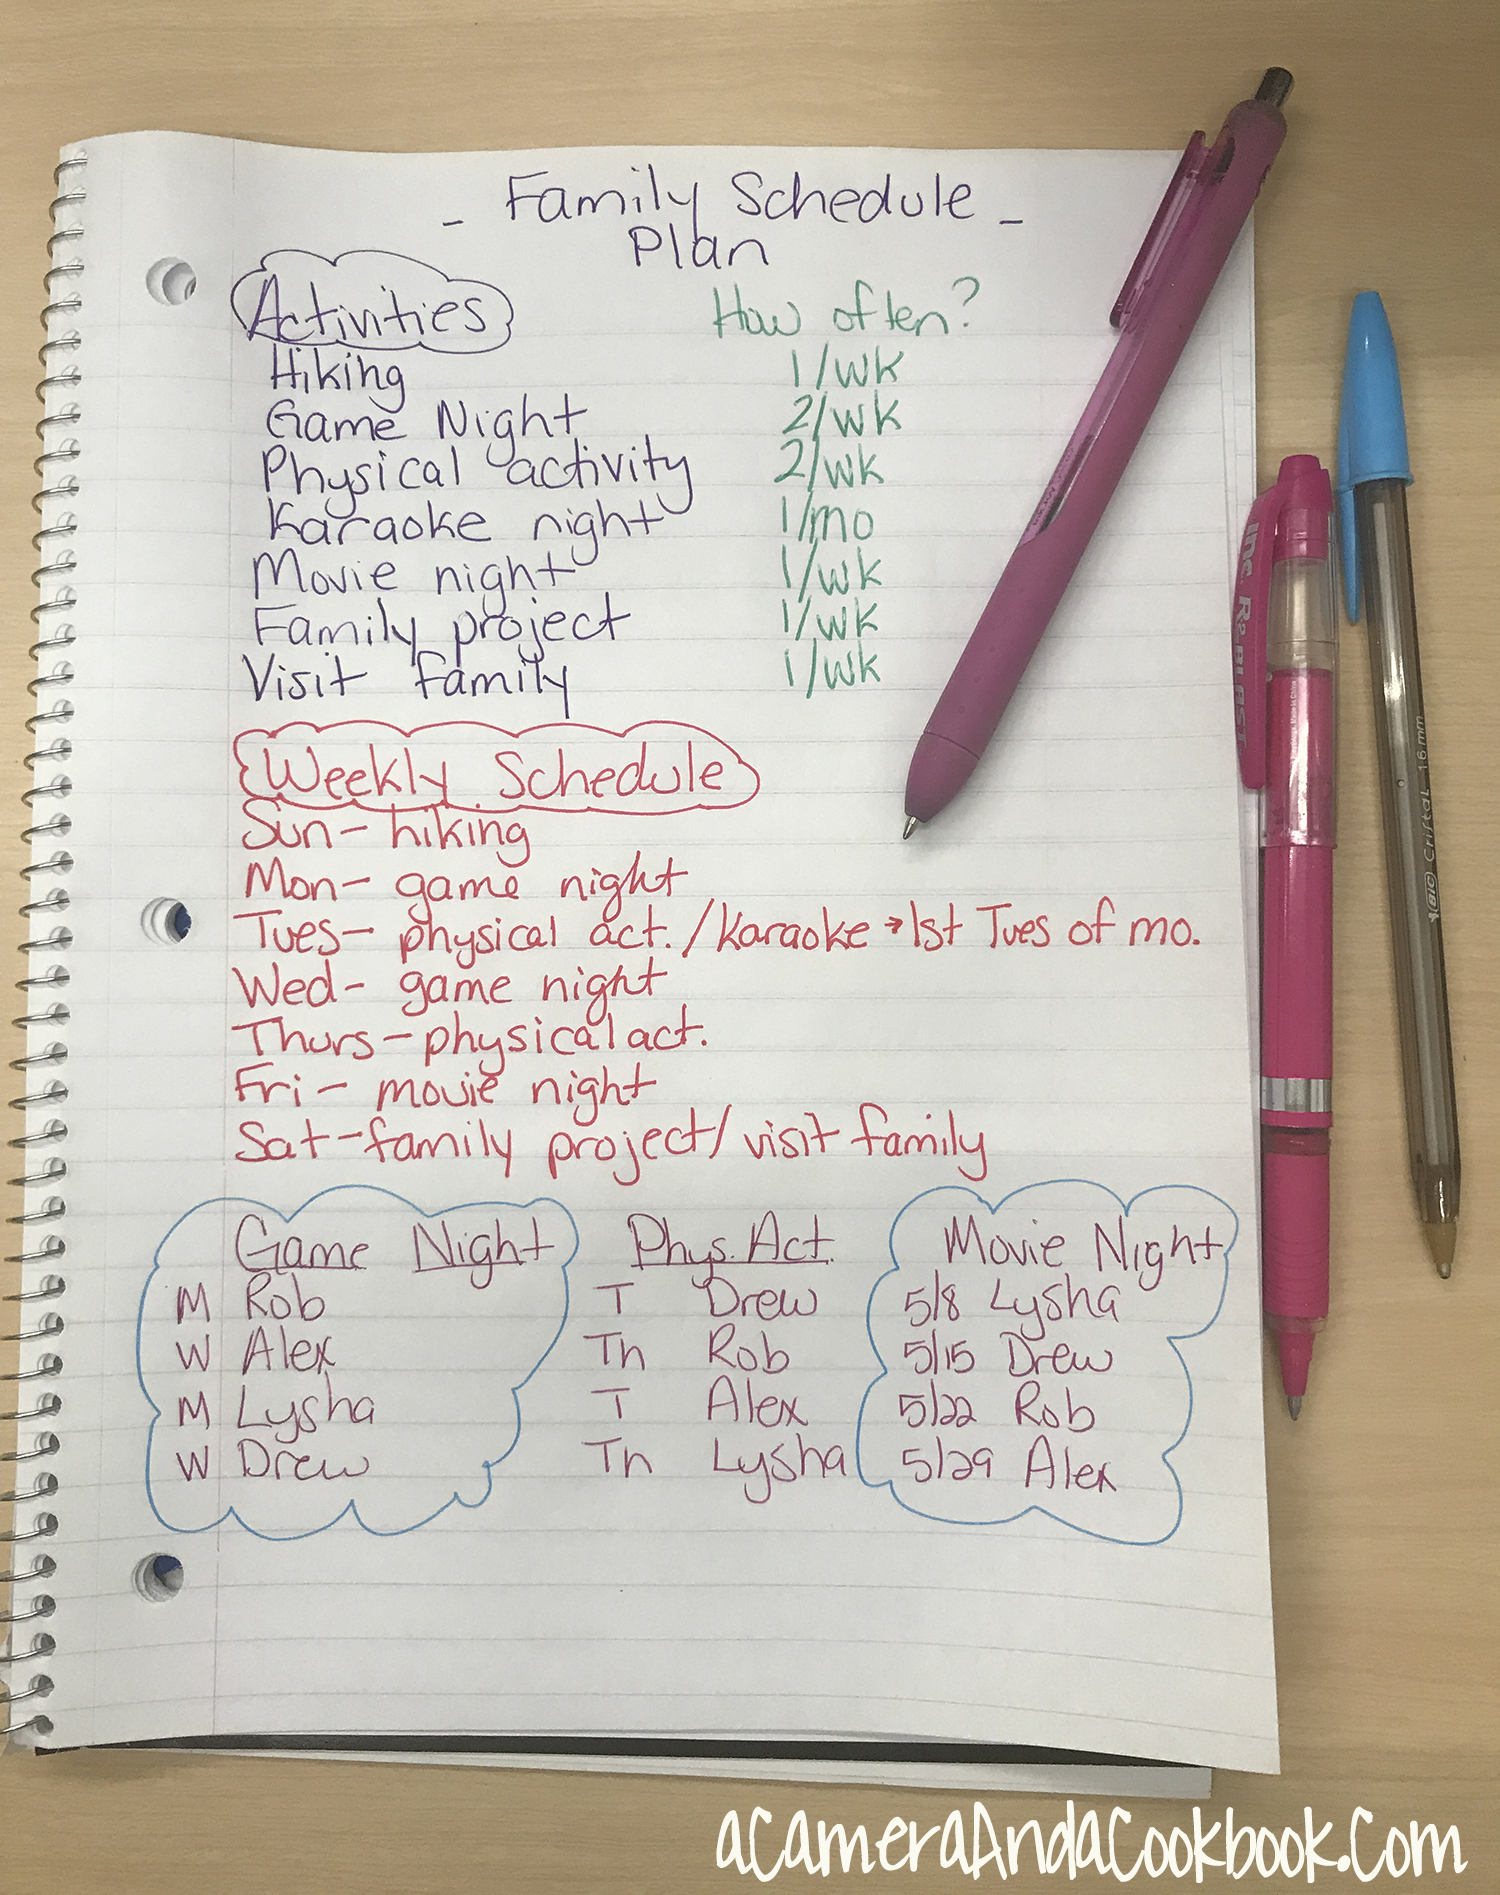 - Family Schedule -
Plan
Activities How often?
Hiking 1/wk
Game Night 2/wk
Physical activity 2/wk
Karaoke night 1/mo
Movie night 1/wk
Family project 1/wk
Visit family 1/wk
Weekly Schedule
Sun- hiking
Mon- game night
Tues- physical act./Karaoke → 1st Tues of mo.
Wed- game night
Thurs- physical act.
Fri- movie night
Sat-family project/ visit family
Game Night Phys. Act. Movie Night
M Rob T Drew 5/8 Lysha
W Alex Th Rob 5/15 Drew
M Lysha T Alex 5/22 Rob
W Drew Th Lysha 5/29 Alex
inc. R2 BLAST
BIC Cristal 1.6 mm
aCameraAndaCookbook.Com